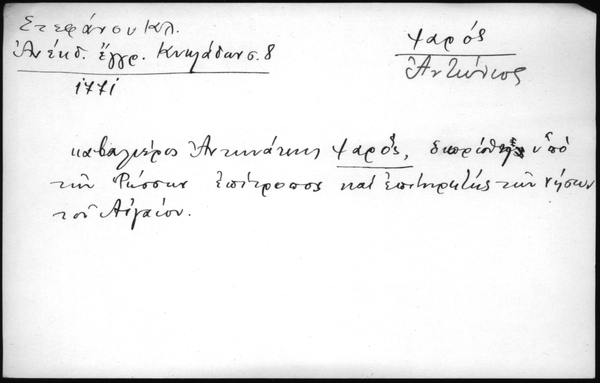 Στεφάνου Κλ.
Ἀνέκδ. ἔγγρ. Κυκλάδων σ. 8
1771
Ψαρός
Ἀντώνιος
καβαλιέρος Ἀντωνάκης Ψαρός, διορισθεὶς ὑπὸ
τῶν Ῥώσσων ἐπίτροπος καὶ ἐπιτηρητὴς τῶν νήσων
τοῦ Αἰγαίου.